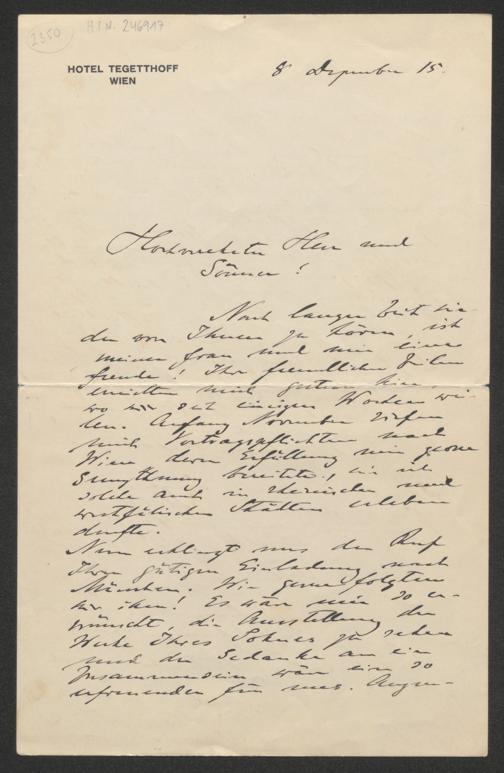 2350 H.I.N. 246917
HOTEL TEGETTHOFF
WIEN
8 Dezember 15.
Hochverehrter Herr und
Gönner!
Nach langer Zeit wie-
der von Ihnen zu hören, ist
meiner Frau und mir eine
Freude! Ihr freundlichen Zeilen
erreichten mich gestern hier,
wo wir seit einigen Wochen wei-
len. Anfang November riefen
mich Vortragspflichten nach
Wien deren Erfüllung mir
Genugthuung bereitete, wie ich
solche auch in rheinischen und
westfälischen Städten erleben
durfte.
Nun erklingt uns der Ruf
Ihrer gütigen Einladung nach
München. Wie gerne folgten
wir ihm! Es wär mir so er-
wünscht, die Ausstellung der
Werke Ihres Sohnes zu sehen
und der Gedanke an ein
Zusammensein wär ein so
erfreuender für uns. Augen-